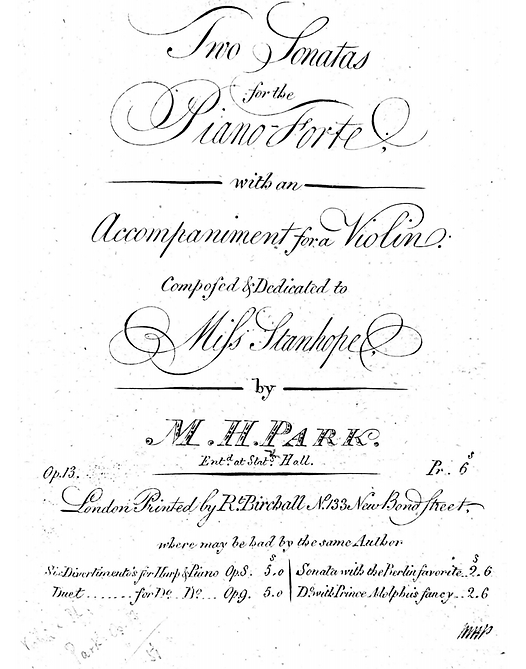 Two Sonatas
for the
Piano-Forte;
with an
Accompaniment for a Violin:
Composed & Dedicated to
Miss Stanhope,
by
M. H. PARK.
Ent.d at Stat.rs Hall.
Op. 13. Pr. 6s
London Printed by R.t Birchall No. 133 New Bond Street.
where may be had by the same Author
Six Divertimento's for Harp & Piano Op 8. 5s.0 | Sonata with the Berlin favorite.. 2s.6
Duet ....... for Do. Do... Op 9. 5.0 | Do. with Prince Adolphus fancy.. 2.6
MHP